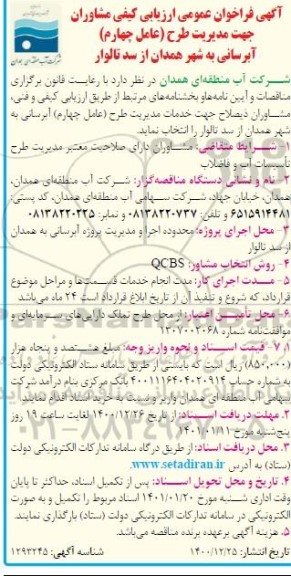 آگهی فراخوان عمومی ارزیابی کیفی مشاوران
جهت مدیریت طرح (عامل چهارم)
آبرسانی به شهر همدان از سد تالوار
شرکت آب منطقه‌ای همدان در نظر دارد با رعایت قانون برگزاری
مناقصات و آیین نامه‌هاو بخشنامه‌های مرتبط از طریق ارزیابی کیفی و فنی،
مشاوران ذیصلاح جهت خدمات مدیریت طرح (عامل چهارم) آبرسانی به
شهر همدان از سد تالوار را انتخاب نماید.
۱- شرایط متقاضی: مشاوران دارای صلاحیت معتبر مدیریت طرح
تأسیسات آب و فاضلاب
۲- نام و نشانی دستگاه مناقصه‌گزار: شرکت آب منطقه‌ای همدان،
همدان، خیابان جهاد، شرکت سهامی آب منطقه‌ای همدان، کد پستی:
۶۵۱۵۹۱۴۴۸۱ و تلفن: ۰۸۱۳۸۲۲۰۷۳۷ و نمابر: ۰۸۱۳۸۲۲۰۲۲۵
۳- محل اجرای پروژه: محدوده اجرا و مدیریت پروژه آبرسانی به همدان
از سد تالوار
۴- روش انتخاب مشاور: QCBS
۵- مدت اجرای کار: مدت انجام خدمات قسمت‌ها و مراحل موضوع
قرارداد، که شروع و تنفیذ آن از تاریخ ابلاغ قرارداد است ۲۴ ماه می‌باشد
۶- محل تأمین اعتبار: از محل طرح تملک دارایی‌های سرمایه‌ای و
موافقت‌نامه شماره ۱۳۰۷۰۰۲۰۶۸
۷٫۱- قیمت اسناد و نحوه واریز وجه: مبلغ هشتصد و پنجاه هزار
(۸۵۰٫۰۰۰) ریال است که بایستی از طریق سامانه ستاد الکترونیکی دولت
به شماره حساب ۴۰۰۱۱۱۶۴۰۴۰۲۰۹۱۴ بانک مرکزی بنام درآمد شرکت
سهامی آب منطقه ای همدان واریز و نسبت به خرید اسناد اقدام نمایند
۲. مهلت دریافت اسناد: از تاریخ ۱۴۰۰/۱۲/۲۶ لغایت ساعت ۱۹ روز
پنج‌شنبه مورخ ۱۴۰۱/۰۱/۱۱
۳. محل دریافت اسناد: از طریق درگاه سامانه تدارکات الکترونیکی دولت
(ستاد) به آدرس www.setadiran.ir
۴. تاریخ و محل تحویل اسناد: پس از تکمیل اسناد، حداکثر تا پایان
وقت اداری شنبه مورخ ۱۴۰۱/۰۱/۲۰ اسناد مربوط را تکمیل و به صورت
الکترونیکی در سامانه تدارکات الکترونیکی دولت (ستاد) بارگذاری نمایند.
۵. هزینه آگهی برعهده برنده مناقصه می‌باشد.
تاریخ انتشار: ۱۴۰۰/۱۲/۲۵ شناسه آگهی: ۱۲۹۳۲۴۵